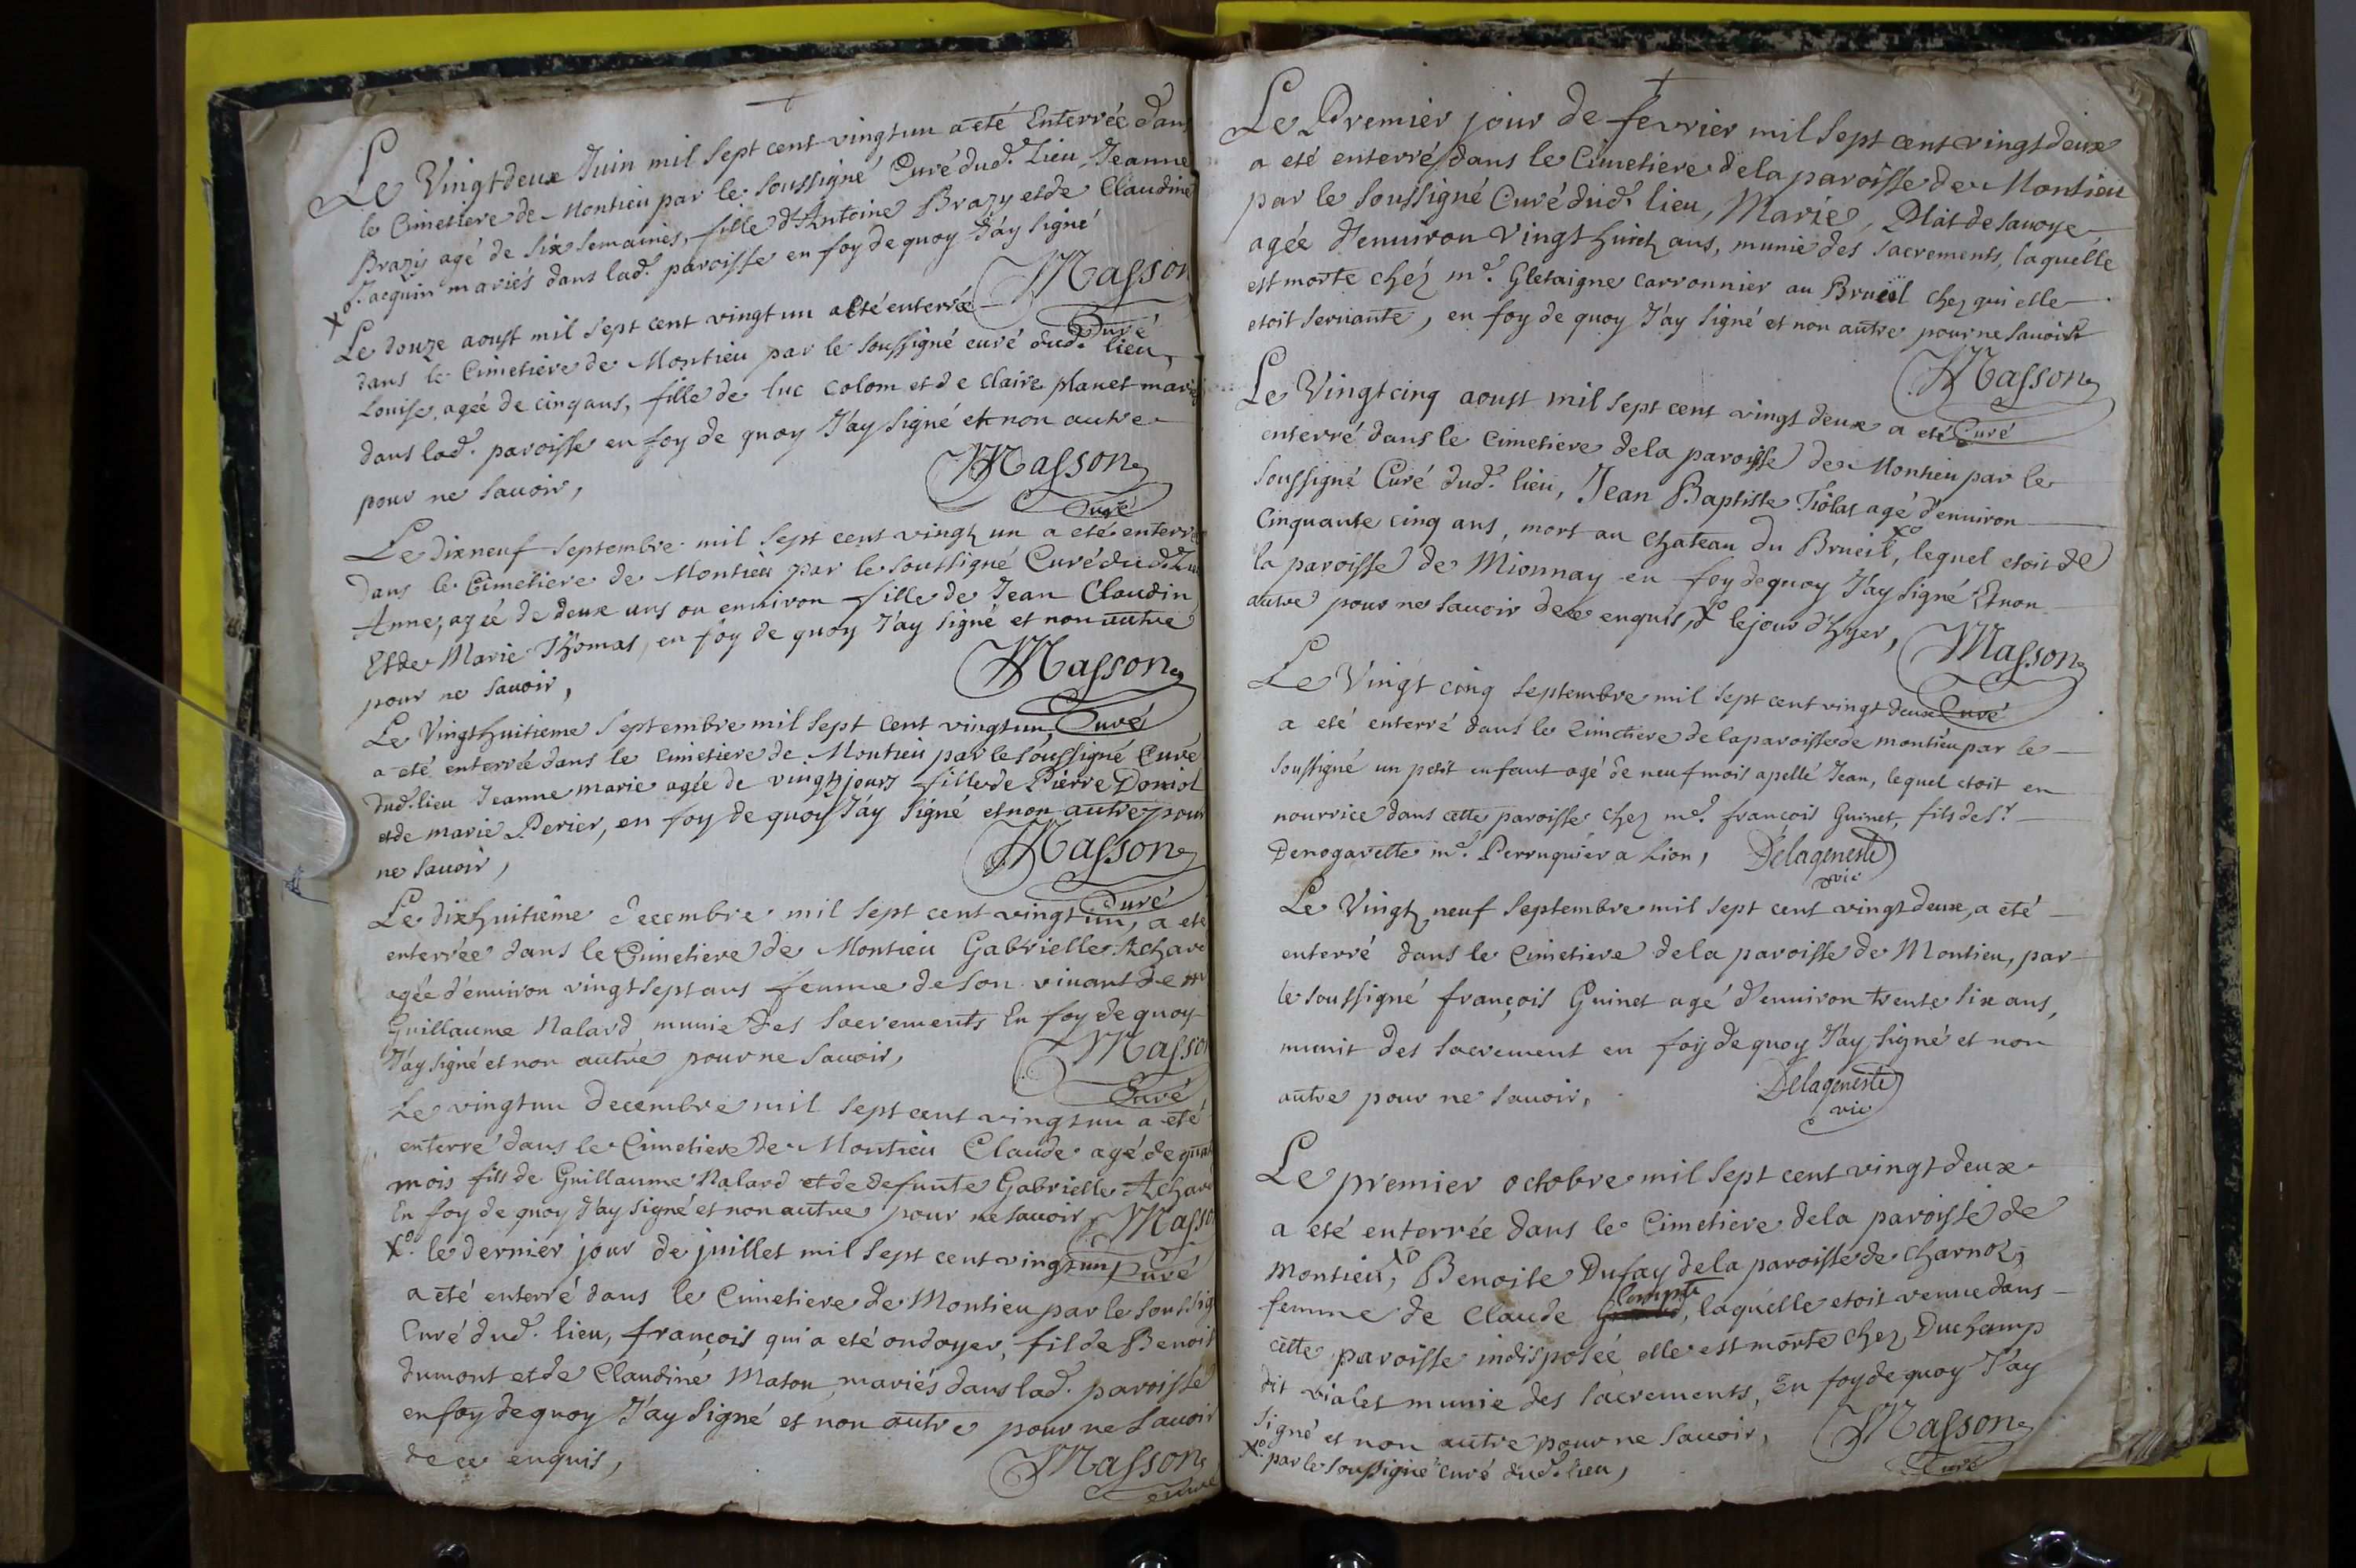 Le Vingtdeux Juin mil sept cent vingtun a eté Enterrée dans
le Cimetiere de Montieu par le soussigné Curé dud. Lieu Jeanne
Brazy agé de six semaines, fille d'Antoine Brazy et de Claudine
Jacquin mariés dans lad. paroisse en foy de quoy J'ay signé
Masson
Curé
xo
Le douze aoust mil sept cent vingt un a eté enterrée
dans le Cimetiere de Montieu par le soussigné curé dud. lieu,
Louise, agée de cinq ans, fille de luc colom et de claire planet mariés
dans lad. paroisse en foy de quoy J'ay signé et non autre
pour ne savoir,
Masson
Curé
Le dixneuf Septembre mil sept cent vingt un a eté enterré
dans le Cimetiere de Montieu par le soussigné Curé dud. Lieu
Anne, agée de deux ans ou environ fille de Jean Claudin
Et de Marie Thomas, en foy de quoy J'ay signé et non autre
pour ne savoir,
Masson
Curé
Le Vingthuitieme Septembre mil sept cent vingtun,
a eté enterrée dans le cimetiere de Montieu par le soussigné Curé
dud. lieu Jeanne marie agée de vingt jours fille de Pierre Doniol
et de marie Perier, en foy de quoy J'ay signé et non autre pour
ne savoir,
Masson
Curé
Le dixhuitième decembre mil sept cent vingt un, a eté
enterrée dans le Cimetiere de Montieu Gabrielle Achard
agée d'environ vingt sept ans femme de son vivant de mr
Guillaume Nalard munie des sacrements En foy de quoy
J'ay signé et non autre pour ne savoir,
Masson
Curé
Le vingtun decembre mil sept cent vingtun a eté
enterré dans le Cimetiere de Montieu Claude agé de quat
mois fils de Guillaume Nalard et de defunte Gabrielle Achard
En foy de quoy J'ay signé et non autre pour ne savoir
Masson
Curé
xo. le dernier jour de juillet mil sept cent vingt un
a eté enterré dans le Cimetiere de Montieu par le soussig
Curé dud. lieu, françois qui a eté ondoyer, fil de Benoit
dumont et de Claudine Maton mariés dans lad. paroisse
en foy de quoy J'ay signé et non autre pour ne savoir
de ce enquis,
Masson
curé
Le Premier jour de fevrier mil sept cent vingtdeux
a eté enterré dans le Cimetiere de la paroisse de Montieu
par le soussigné Curé dud. lieu, Marie, Plat de savoye
agée d'environ Vingt huict ans, munie des sacrements, laquelle
est morte chez me. Gletaigne Carronnier au Brueil chez qui elle
etoit servante, en foy de quoy J'ay signé et non autre pour ne savoir
Masson
Curé
Le Vingtcinq aoust mil sept cent vingt deux a eté
enterré dans le Cimetiere de la paroisse de Montieu par le
soussigné Curé dud. lieu, Jean Baptiste Fiolat agé d'environ
Cinquante cinq ans, mort au chateau du Brueil xo, lequel etoit de
la paroisse de Mionnay en foy de quoy J'ay signé Et non
autre pour ne savoir de ce enquis, xo le jour d'hyer,
Masson
Curé
Le Vingt cinq Septembre mil sept cent vingt deux
a eté enterré dans le Cimetiere de la paroisse de montieu par le
soussigné un petit enfant agé de neuf mois apellé Jean, lequel etoit en
nourrice dans cette paroisse chez me. françois Guinet, fils de sr
Denogarette me. Perruquier a Lion, Delageneste
vic
Le Vingt neuf Septembre mil sept cent vingt deux, a eté
enterré dans le Cimetiere de la paroisse de Montieu, par
le soussigné françois Guinet agé d'environ trente six ans,
munit des sacrement en foy de quoy J'ay signé et non
autre pour ne savoir,
Delageneste
vic
Le premier octobre mil sept cent vingt deux
a eté enterrée dans le Cimetiere de la paroisse de
montieu, xo Benoite Dufay de la paroisse de Charnoz,
femme de Claude Compte, laquelle etoit venue dans
cette paroisse indisposée elle est morte chez Duchamp
dit vialet munie des sacrements, En foy de quoy J'ay
signé et non autre pour ne savoir,
Masson
Curé
xo. par le soussigné curé dud. lieu,